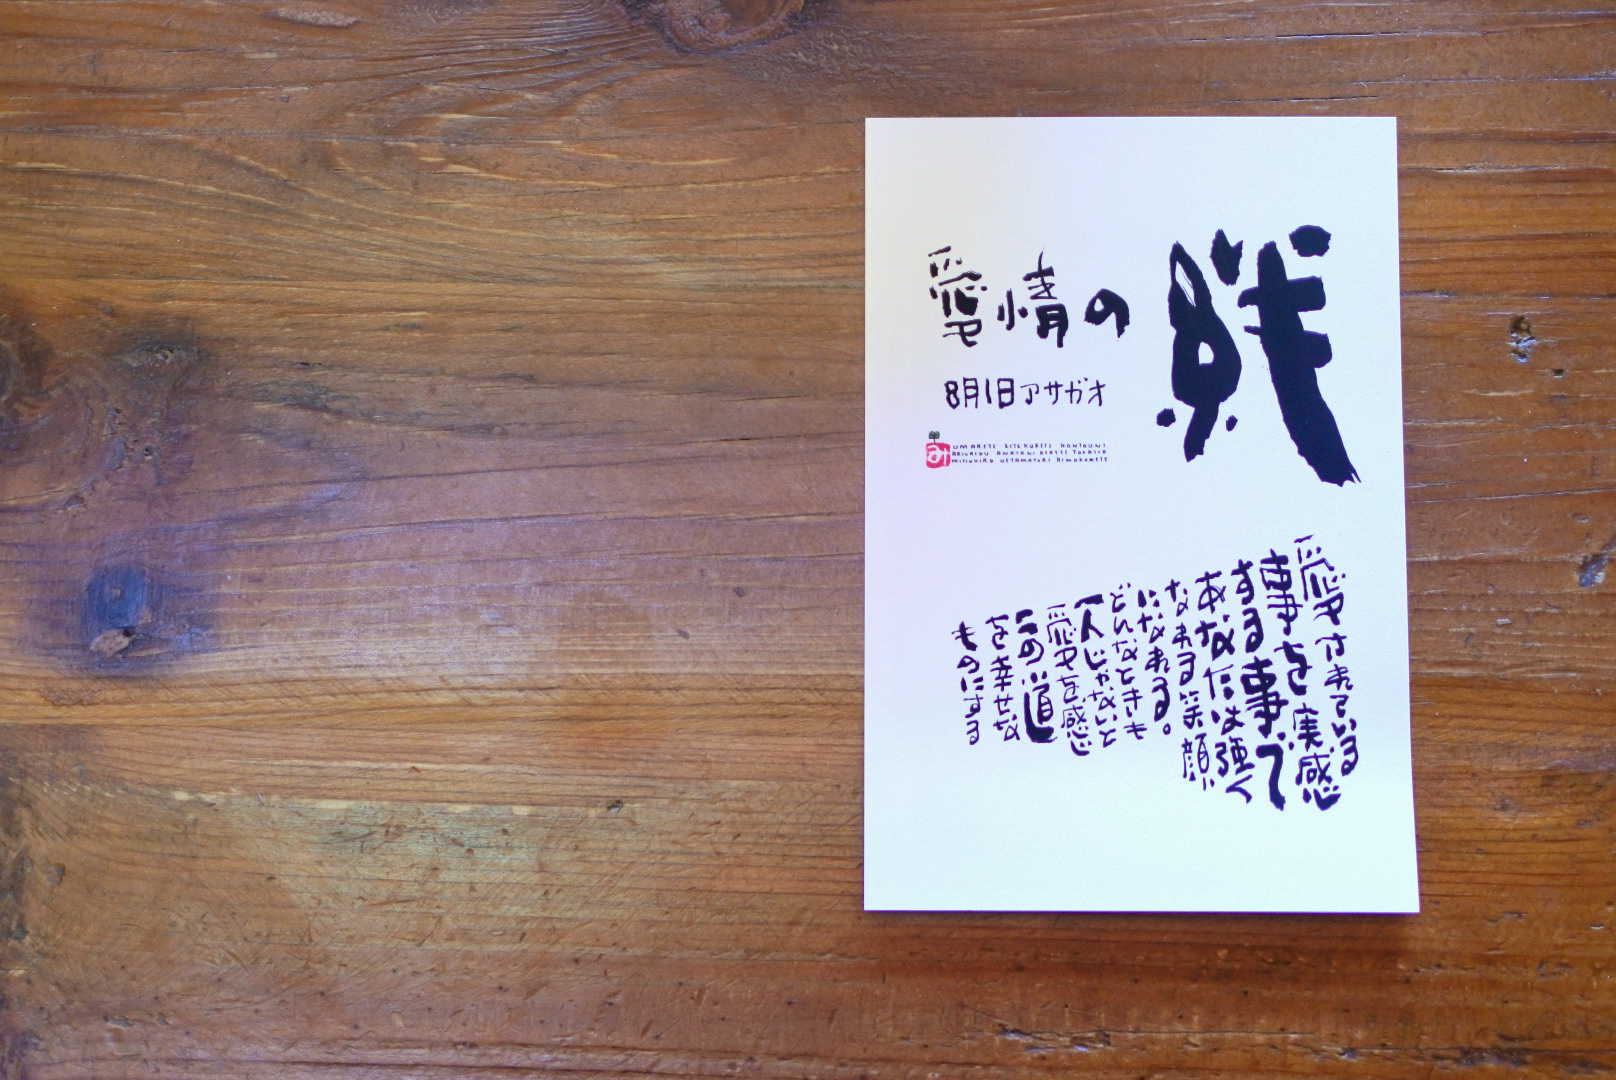 愛情の
絆
8月1日アサガオ
み
UMARETE KITEKURETE HONTOUNI
ARIGATOU ANATANI
愛されている
事を実感
する事で
あなたは強く
なれる笑顔
になれる。
どんなときも
一人じゃないと
愛を感じ
この道
を幸せな
ものにする